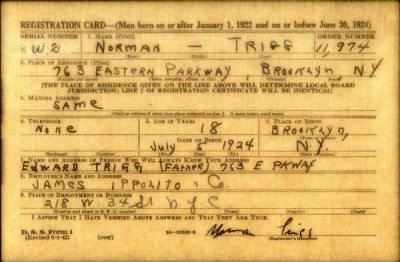 REGISTRATION CARD—(Men born on or after January 1, 1922 and on or before June 30, 1924)
SERIAL NUMBER 1. NAME (Print) ORDER NUMBER
W2 NORMAN — TRIGG 11,974
2. PLACE OF RESIDENCE (Print)
763 EASTERN PARKWAY, BROOKLYN N.Y.
[THE PLACE OF RESIDENCE GIVEN ON THE LINE ABOVE WILL DETERMINE LOCAL BOARD
JURISDICTION; LINE 2 OF REGISTRATION CERTIFICATE WILL BE IDENTICAL]
3. MAILING ADDRESS
SAME
4. TELEPHONE 5. AGE IN YEARS 6. PLACE OF BIRTH
None 18 BROOKLYN,
DATE OF BIRTH
July 5 1924 N.Y.
7. NAME AND ADDRESS OF PERSON WHO WILL ALWAYS KNOW YOUR ADDRESS
EDWARD TRIGG (FATHER) 763 E PKWAY
8. EMPLOYER'S NAME AND ADDRESS
JAMES IPPOLITO & CO.
9. PLACE OF EMPLOYMENT OR BUSINESS
218 W. 34 St N.Y.C
I AFFIRM THAT I HAVE VERIFIED ABOVE ANSWERS AND THAT THEY ARE TRUE.
D. S. S. Form 1
(Revised 6-9-42) Norman Trigg